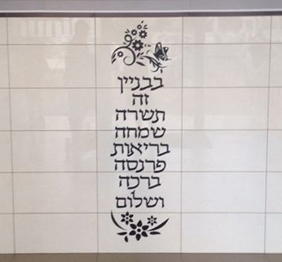 בבניין
זה
תשרה
שמחה
בריאות
פרנסה
ברכה
ושלום